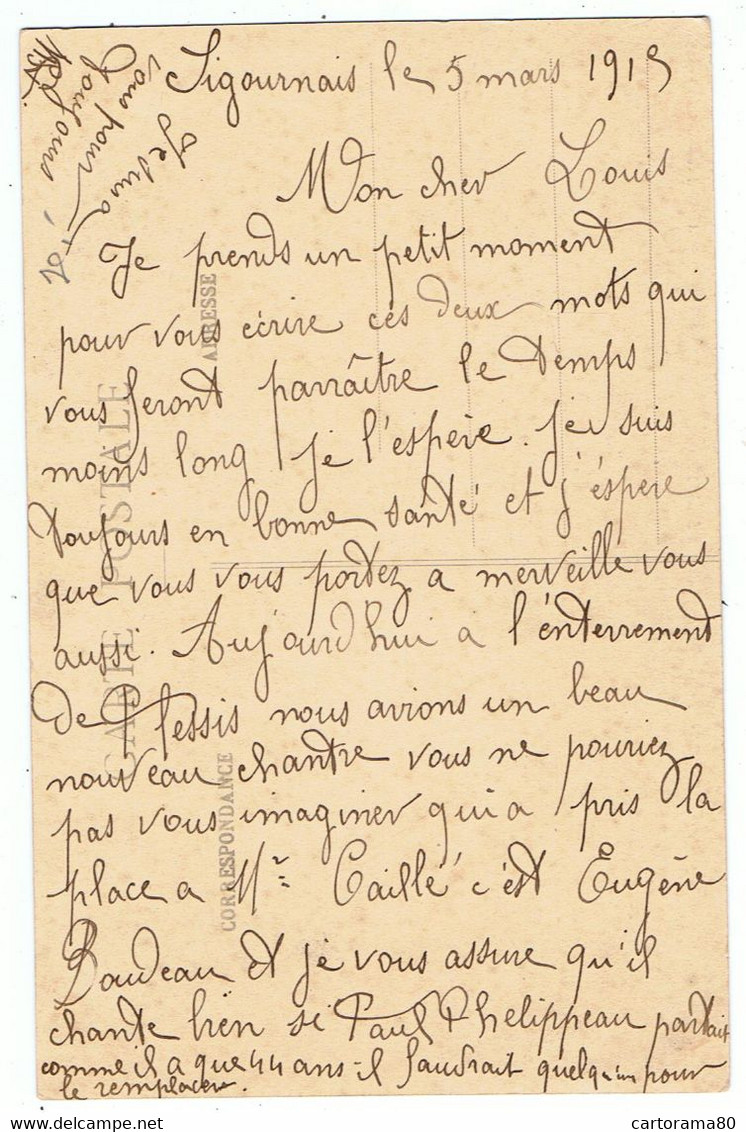 Sigournais le 5 mars 1915
Mon cher Louis
Je prends un petit moment
pour vous écrire ces deux mots qui
vous feront parraître le temps
moins long je l'espère. Je suis
toujours en bonne santé et j'éspère
que vous vous portez a merveille vous
aussi. Aujourd'hui a l'énterrement
de Plessis nous avions un beau
nouveau chantre vous ne pouriez
pas vous imaginer qui a pris la
place a Mr Caillé c'est Eugène
Baudeau et je vous assure qu'il
chante bien si Paul Phelippeau partait
comme il a que 44 ans il faudrait quelqu'un pour
le remplacer.
vous pour
toujours
CARTE POSTALE
CORRESPONDANCE
ADRESSE
cartorama80